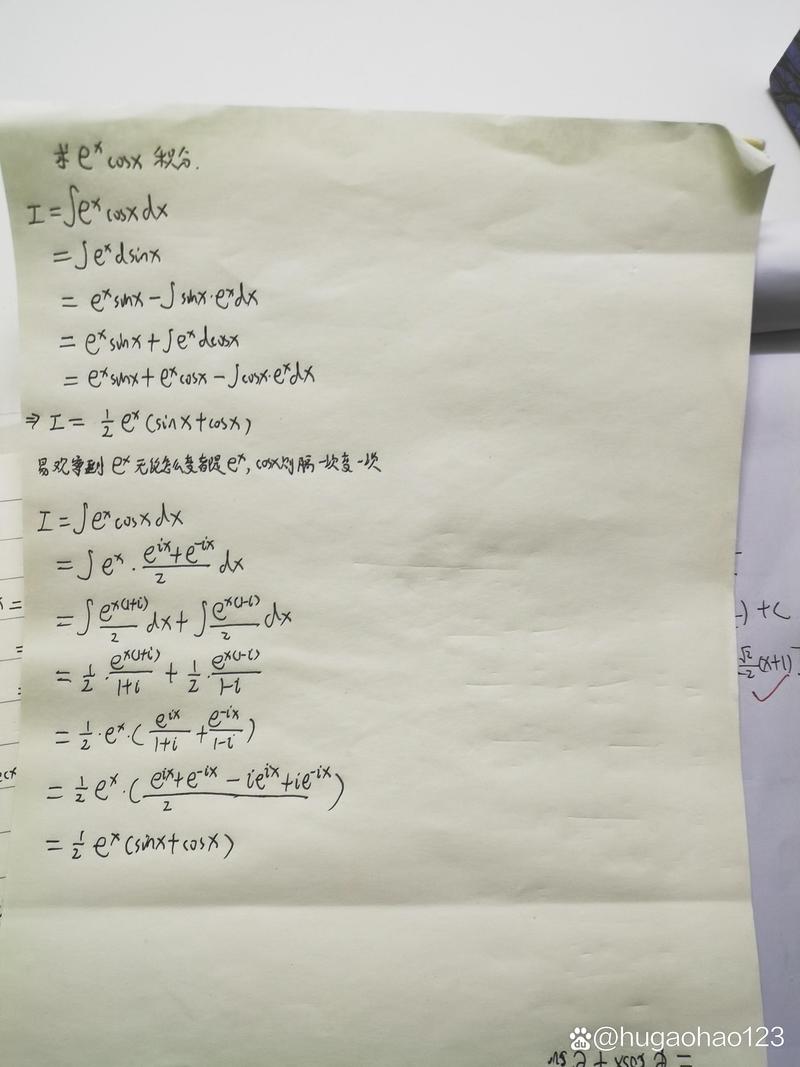 求 e^x cosx 积分.
I = ∫e^x cosx dx
= ∫e^x dsinx
= e^x sinx − ∫sinx·e^x dx
= e^x sinx + ∫e^x dcosx
= e^x sinx + e^x cosx − ∫cosx·e^x dx
⇒ I = 1/2 e^x (sinx + cosx)
易观察到 e^x 无论怎么变都是 e^x, cosx则隔一次变一次
I = ∫e^x cosx dx
= ∫e^x · (e^{ix} + e^{-ix})/2 dx
= ∫e^{x(1+i)}/2 dx + ∫e^{x(1-i)}/2 dx
= 1/2 · e^{x(1+i)}/(1+i) + 1/2 · e^{x(1-i)}/(1-i)
= 1/2 · e^x · (e^{ix}/(1+i) + e^{-ix}/(1-i))
= 1/2 e^x · ((e^{ix} + e^{-ix} − ie^{ix} + ie^{-ix})/2)
= 1/2 e^x (sinx + cosx)
) + C
(x+1)
@hugaohao123